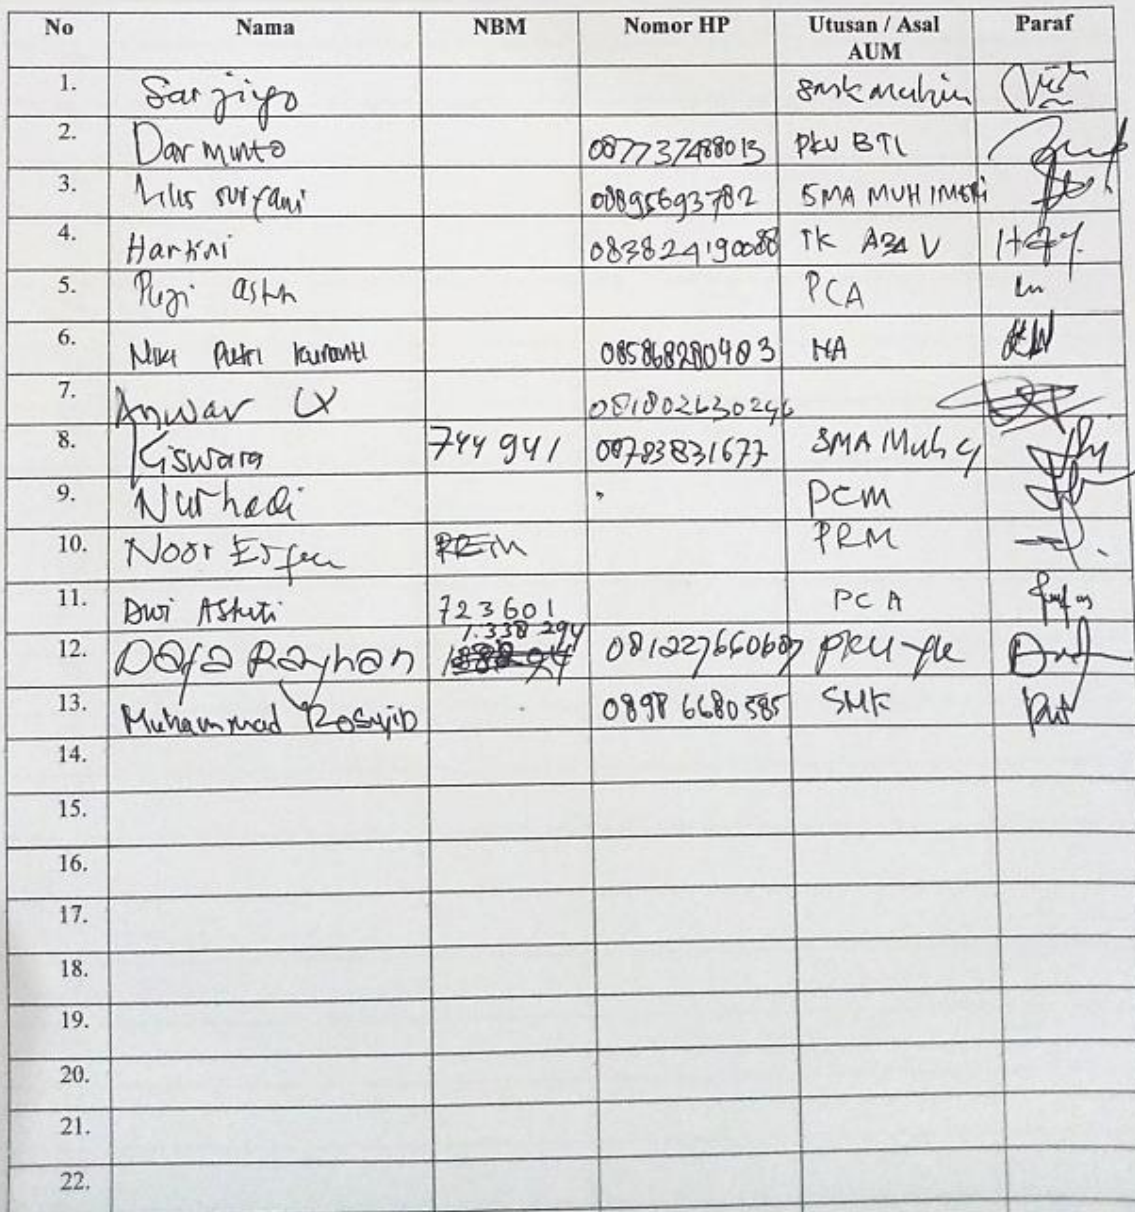 No Nama NBM Nomor HP Utusan / Asal AUM Paraf
1. Sarjiyo smk muhim
2. Darminto 087737488013 PKU BTL
3. Lilis suryani 08895693782 SMA MUH IMOGIRI
4. Hartini 083824190088 TK ABA V
5. Puji astu PCA
6. Niki Putri kuranti 085868280403 NA
7. Anwar 081802630246
8. Kiswara 744 941 08783831677 SMA Muh
9. Nurhadi PCM
10. Noor PRM PRM
11. Dwi Astuti 723601 PCA
12. Dafa Rayhan 1.338 294 081227660687 PKU
13. Muhammad Rosyid 0898 6680585 SMK
14.
15.
16.
17.
18.
19.
20.
21.
22.